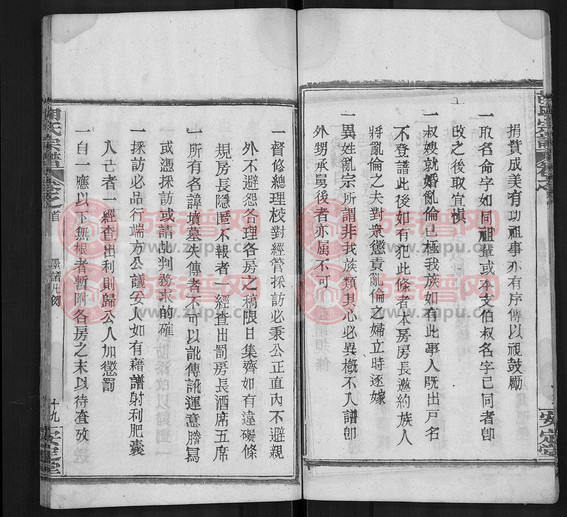 捐貲成美有功祖事亦有序傳以示鼓勵
一取名命字如同祖輩或本支伯叔名字已同者卽
改之後取宜慎
一叔嫂就婚亂倫已極我族如有此事人旣出戶名
不登譜此後如有犯此條者本房房長邀約族人
將亂倫之夫對衆懲責亂倫之婦立時逐嫁
一異姓亂宗所謂非我族類其心必異槪不入譜卽
外甥承舅後者亦屬不可
安定堂
一督修總理校對經管採訪必秉公正直內不避親
外不避怨各理各房之稿限日集齊如有違礙條
規房長隱匿不報者一經查出罰房長酒席五席
一所有名諱墳墓失傳者不可以訛傳訛運意謄寫
或憑採訪或請乩判務求的確
一採訪必品行端方公議妥人如有藉譜射利肥囊
入己者一經查出利則歸公人加懲罰
一自一應以下無根者暫附各房之末以待查攷
胡氏宗譜
卷之首
凡例
十九
安定堂
族譜网
www.zupu.cn
族譜网
www.zupu.cn